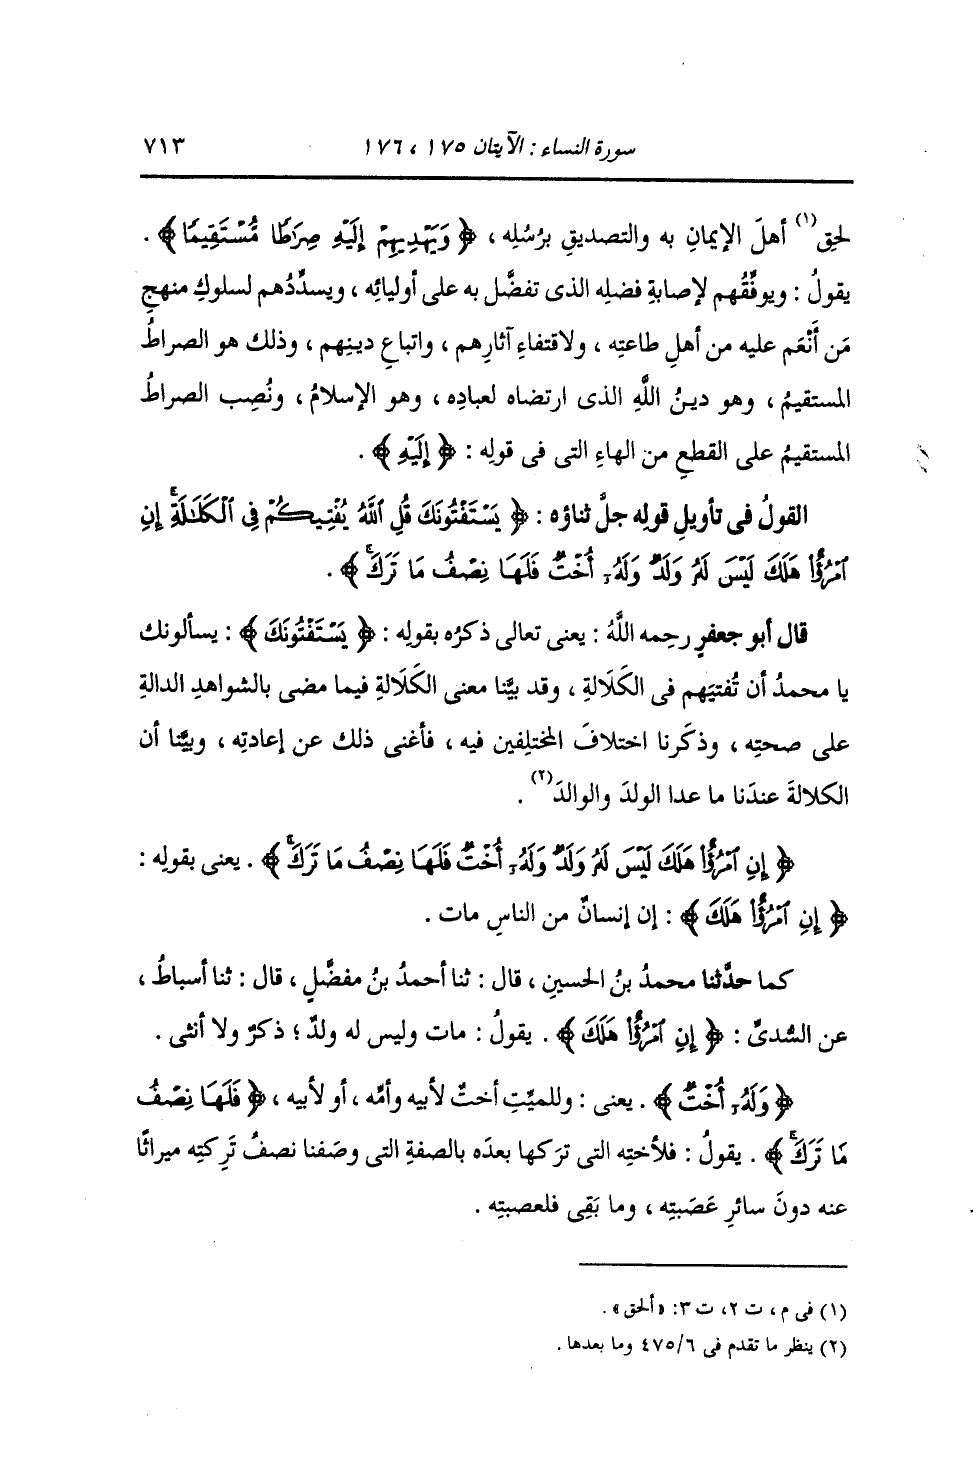 سورة النساء : الآيتان ١٧٥ ، ١٧٦ ٧١٣
لحِق(١) أهلَ الإيمانِ به والتصديقِ برُسُلِه ، ﴿ وَيَهْدِيهِمْ إِلَيْهِ صِرَاطًا مُسْتَقِيمًا ﴾ .
يقولُ : ويوفِّقُهم لإصابةِ فضلِه الذى تفضَّل به على أوليائِه ، ويسدِّدُهم لسلوكِ منهجِ
مَن أَنْعَم عليه من أهلِ طاعتِه ، ولاقتفاءِ آثارِهم ، واتباعِ دينِهم ، وذلك هو الصراطُ
المستقيمُ ، وهو دينُ اللَّهِ الذى ارتضاه لعبادِه ، وهو الإسلامُ ، ونُصِب الصراطُ
المستقيمُ على القطعِ من الهاءِ التى فى قولِه : ﴿ إِلَيْهِ ﴾ .
القولُ فى تأويلِ قولِه جلَّ ثناؤه : ﴿ يَسْتَفْتُونَكَ قُلِ ٱللَّهُ يُفْتِيكُمْ فِى ٱلْكَلَـٰلَةِۚ إِنِ
ٱمْرُؤٌا۟ هَلَكَ لَيْسَ لَهُۥ وَلَدٌ وَلَهُۥٓ أُخْتٌ فَلَهَا نِصْفُ مَا تَرَكَۚ ﴾ .
قال أبو جعفرٍ رحِمه اللَّهُ : يعنى تعالى ذكرُه بقولِه : ﴿ يَسْتَفْتُونَكَ ﴾ : يسألونك
يا محمدُ أن تُفتيَهم فى الكَلَالةِ ، وقد بيَّنا معنى الكَلَالةِ فيما مضى بالشواهدِ الدالةِ
على صحتِه ، وذكَرنا اختلافَ المختلِفين فيه ، فأغنى ذلك عن إعادتِه ، وبيَّنا أن
الكلالةَ عندَنا ما عدا الولدَ والوالدَ(٢) .
﴿ إِنِ ٱمْرُؤٌا۟ هَلَكَ لَيْسَ لَهُۥ وَلَدٌ وَلَهُۥٓ أُخْتٌ فَلَهَا نِصْفُ مَا تَرَكَۚ ﴾ . يعنى بقولِه :
﴿ إِنِ ٱمْرُؤٌا۟ هَلَكَ ﴾ : إن إنسانٌ من الناسِ مات .
كما حدَّثنا محمدُ بنُ الحسينِ ، قال : ثنا أحمدُ بنُ مفضَّلٍ ، قال : ثنا أسباطُ ،
عن السُّدىِّ : ﴿ إِنِ ٱمْرُؤٌا۟ هَلَكَ ﴾ . يقولُ : مات وليس له ولدٌ ؛ ذكرٌ ولا أنثى .
﴿ وَلَهُۥٓ أُخْتٌ ﴾ . يعنى : وللميِّتِ أختٌ لأبيه وأمِّه ، أو لأبيه ، ﴿ فَلَهَا نِصْفُ
مَا تَرَكَۚ ﴾ . يقولُ : فلأختِه التى ترَكها بعدَه بالصفةِ التى وصَفنا نصفُ تَرِكتِه ميراثًا
عنه دونَ سائرِ عَصَبتِه ، وما بَقِى فلعصبتِه .
(١) فى م ، ت ٢، ت ٣: «ألحق» .
(٢) ينظر ما تقدم فى ٦/ ٤٧٥ وما بعدها .